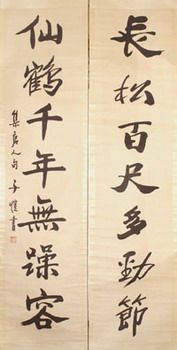 長松百尺多勁節
仙鶴千年無躁容
集唐人句 子愷書